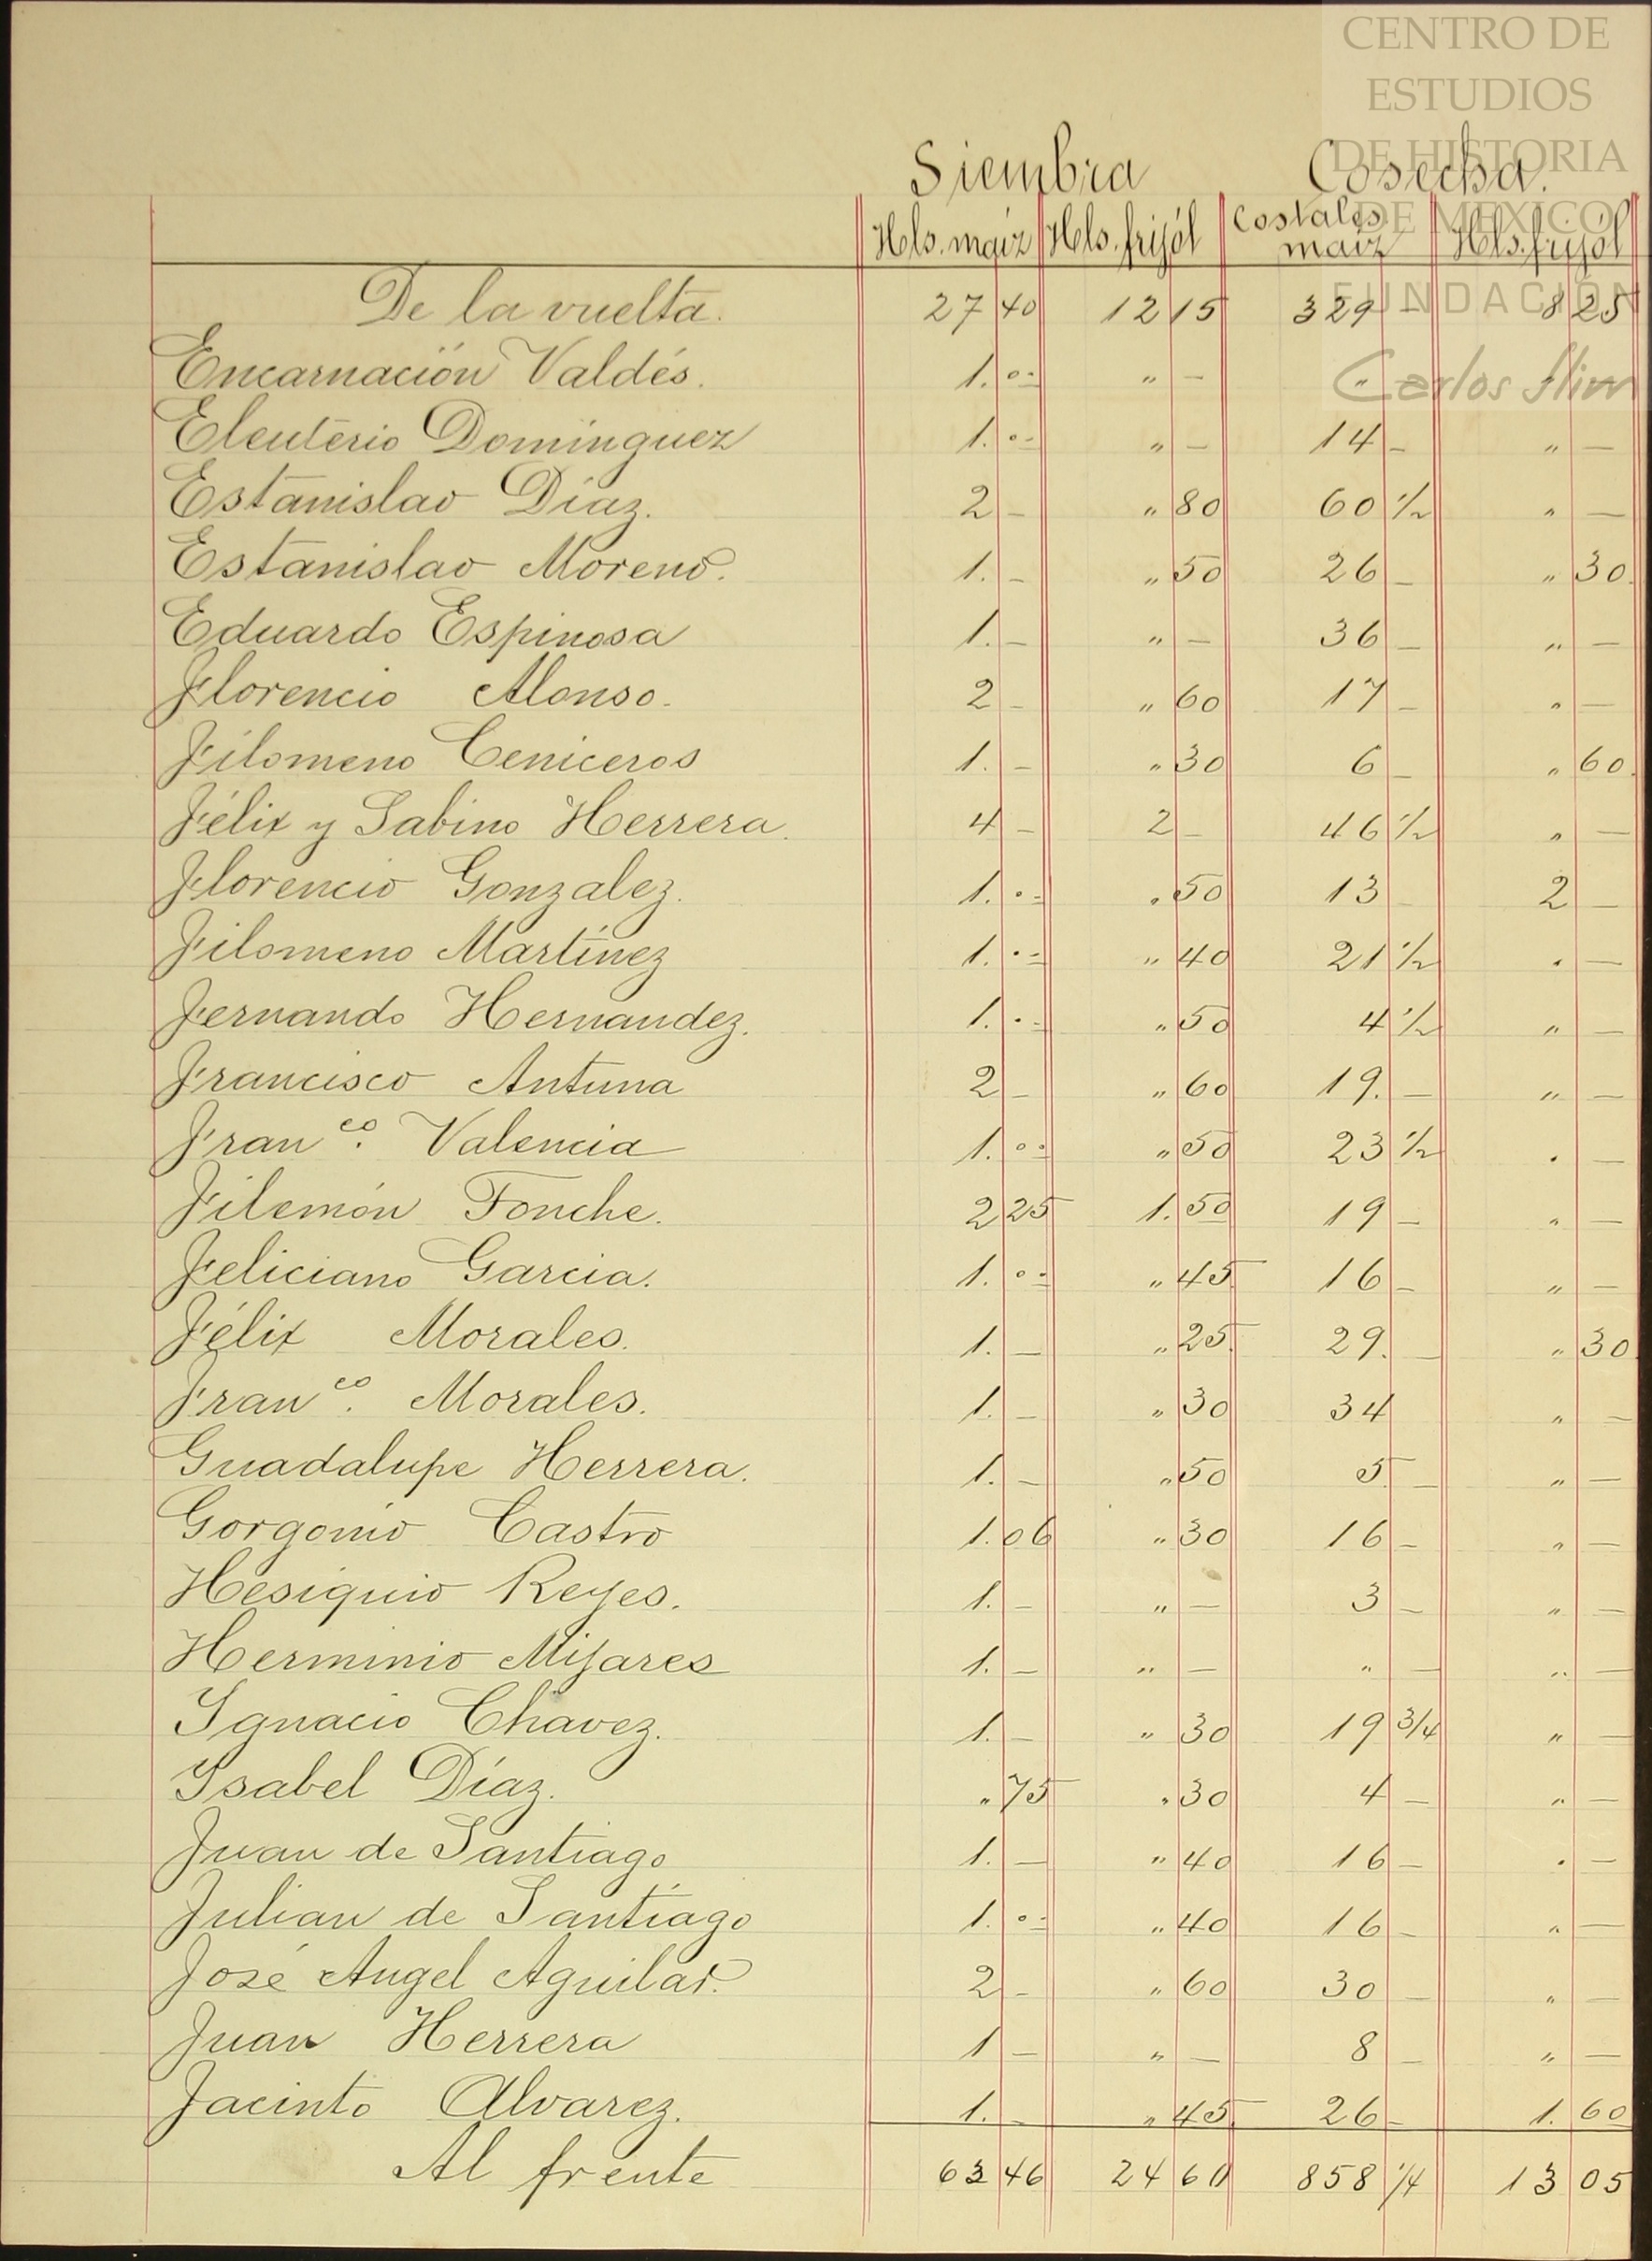 CENTRO DE
ESTUDIOS
DE HISTORIA
DE MEXICO
FUNDACIÓN
Carlos Slim
Siembra Cosecha.
Hls. maíz Hls. frijól Costales maiz Hls. frijól
De la vuelta. 27 40 12 15 329 — 8 25
Encarnación Valdés. 1. 00 " — "
Eleuterio Dominguez 1. 00 " — 14 — " —
Estanislao Díaz. 2 — " 80 60 1/2 " —
Estanislao Moreno. 1. — " 50 26 — " 30.
Eduardo Espinosa 1. — " — 36 — " —
Florencio Alonso. 2 — " 60 17 — " —
Filomeno Ceniceros 1. — " 30 6 — " 60.
Félix y Sabino Herrera. 4 — 2 — 46 1/2 " —
Florencio Gonzalez. 1. 00 " 50 13 — 2 —
Filomeno Martínez 1. 00 " 40 21 1/2 " —
Fernando Hernandez. 1. 00 " 50 4 1/2 " —
Francisco Antuna 2 — " 60 19. — " —
Franco. Valencia 1. 00 " 50 23 1/2 " —
Filemón Fonche. 2 25 1. 50 19 — " —
Feliciano Garcia. 1. 00 " 45 16 — " —
Félix Morales. 1. — " 25. 29. — " 30
Franco. Morales. 1. — " 30 34 " —
Guadalupe Herrera. 1. — " 50 5. — " —
Gorgonio Castro 1. 06 " 30 16 — " —
Hesiquio Reyes. 1. — " — 3 — " —
Herminio Mijares 1. — " — " — " —
Ignacio Chavez. 1. — " 30 19 3/4 " —
Isabel Díaz. " 75 " 30 4 — " —
Juan de Santiago 1. — " 40 16 — " —
Julian de Santiago 1. 00 " 40 16 — " —
José Angel Aguilar. 2 — " 60 30 — " —
Juan Herrera 1 — " — 8 — " —
Jacinto Alvarez. 1. — " 45. 26 — 1. 60
Al frente 63 46 24 60 858 1/4 13 05